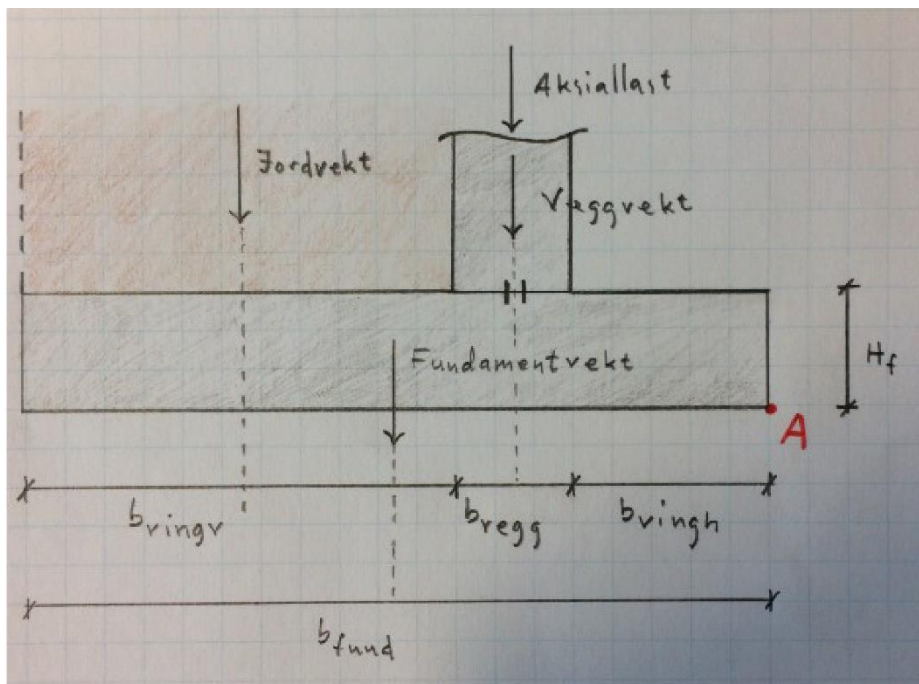 Aksiallast
Jordvekt
Veggvekt
Fundamentvekt
Hf
A
bvingv
bvegg
bvingh
bfund